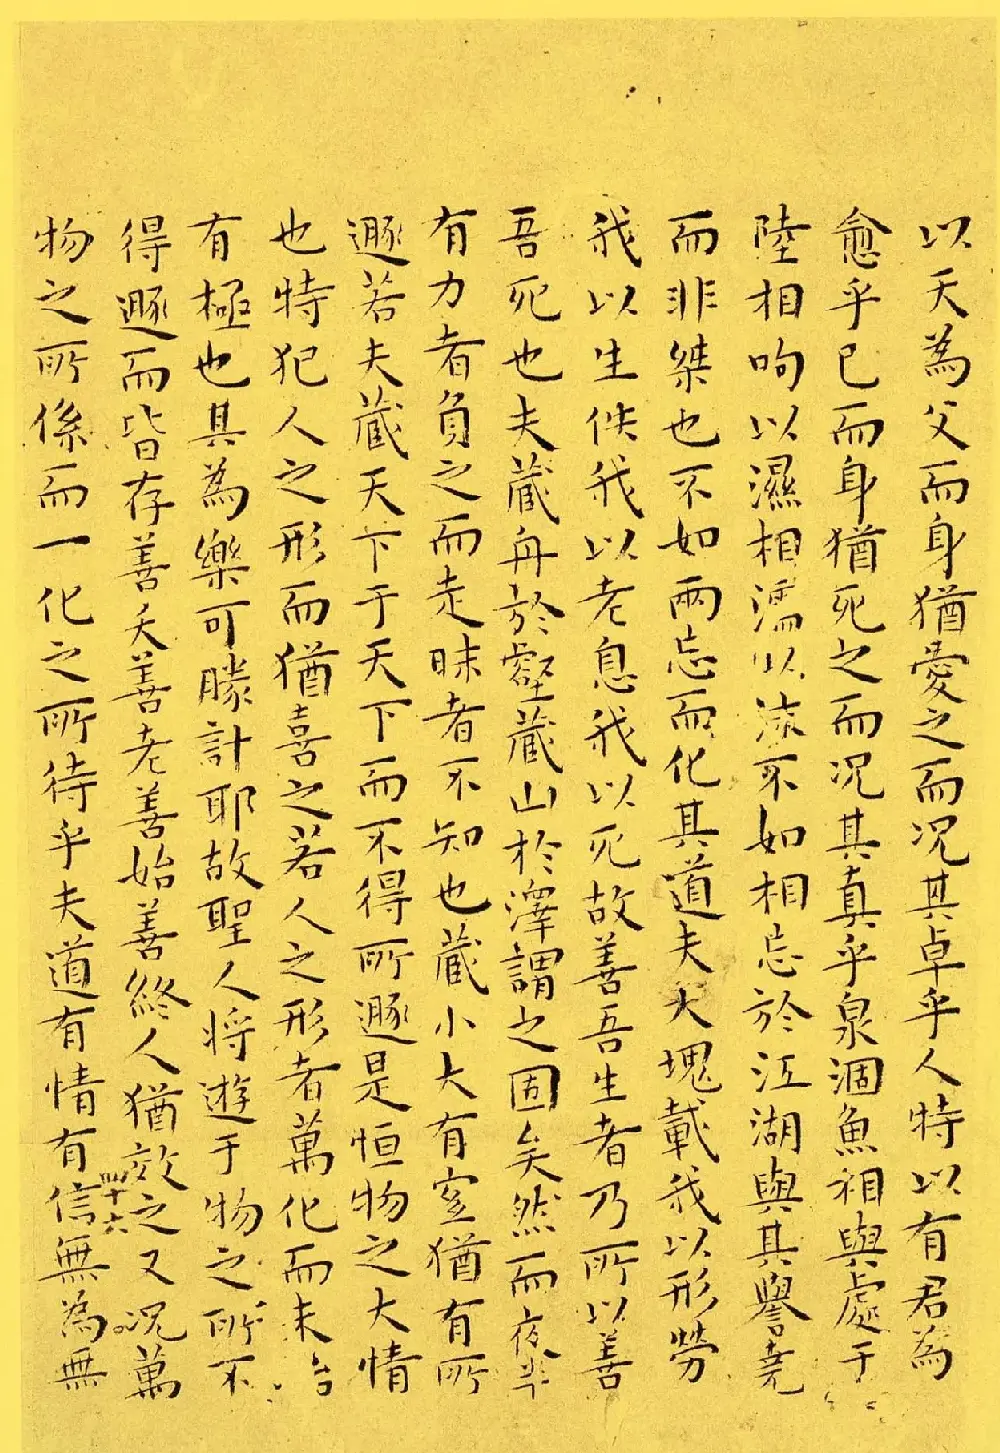 以天為父而身猶愛之而况其卓乎人特以有君為
愈乎已而身猶死之而况其真乎泉涸魚相與處于
陸相呴以濕相濡以沫不如相忘於江湖與其譽堯
而非桀也不如兩忘而化其道夫大塊載我以形勞
我以生佚我以老息我以死故善吾生者乃所以善
吾死也夫藏舟於壑藏山於澤謂之固矣然而夜半
有力者負之而走昧者不知也藏小大有宜猶有所
遯若夫藏天下于天下而不得所遯是恒物之大情
也特犯人之形而猶喜之若人之形者萬化而未始
有極也其為樂可勝計耶故聖人將遊于物之所不
得遯而皆存善夭善老善始善終人猶效之又况萬
物之所係而一化之所待乎夫道有情有信無為無
四十六